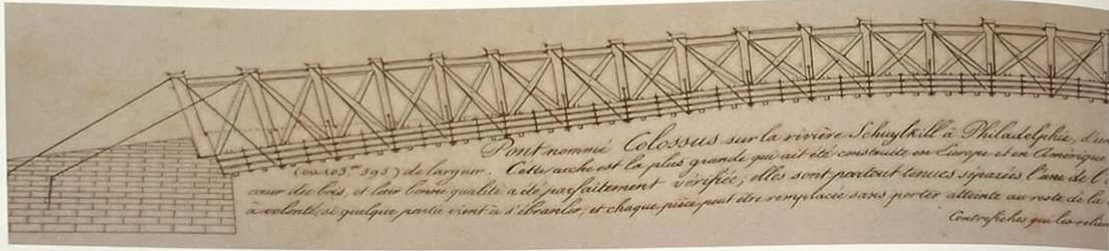 Pont nommé Colossus sur la rivière Schuylkill à Philadelphie, d'un
(ou 103.m 595) de largeur. Cette arche est la plus grande qui ait été construite en Europe et en Amérique
cœur des bois, et leur bonne qualité a été parfaitement vérifiée, elles sont partout tenues séparées l'une de l'
à volonté, si quelque partie vient à s'ébranler, et chaque pièce peut être remplacée sans porter atteinte au reste de la
Contrefiches qui les relient